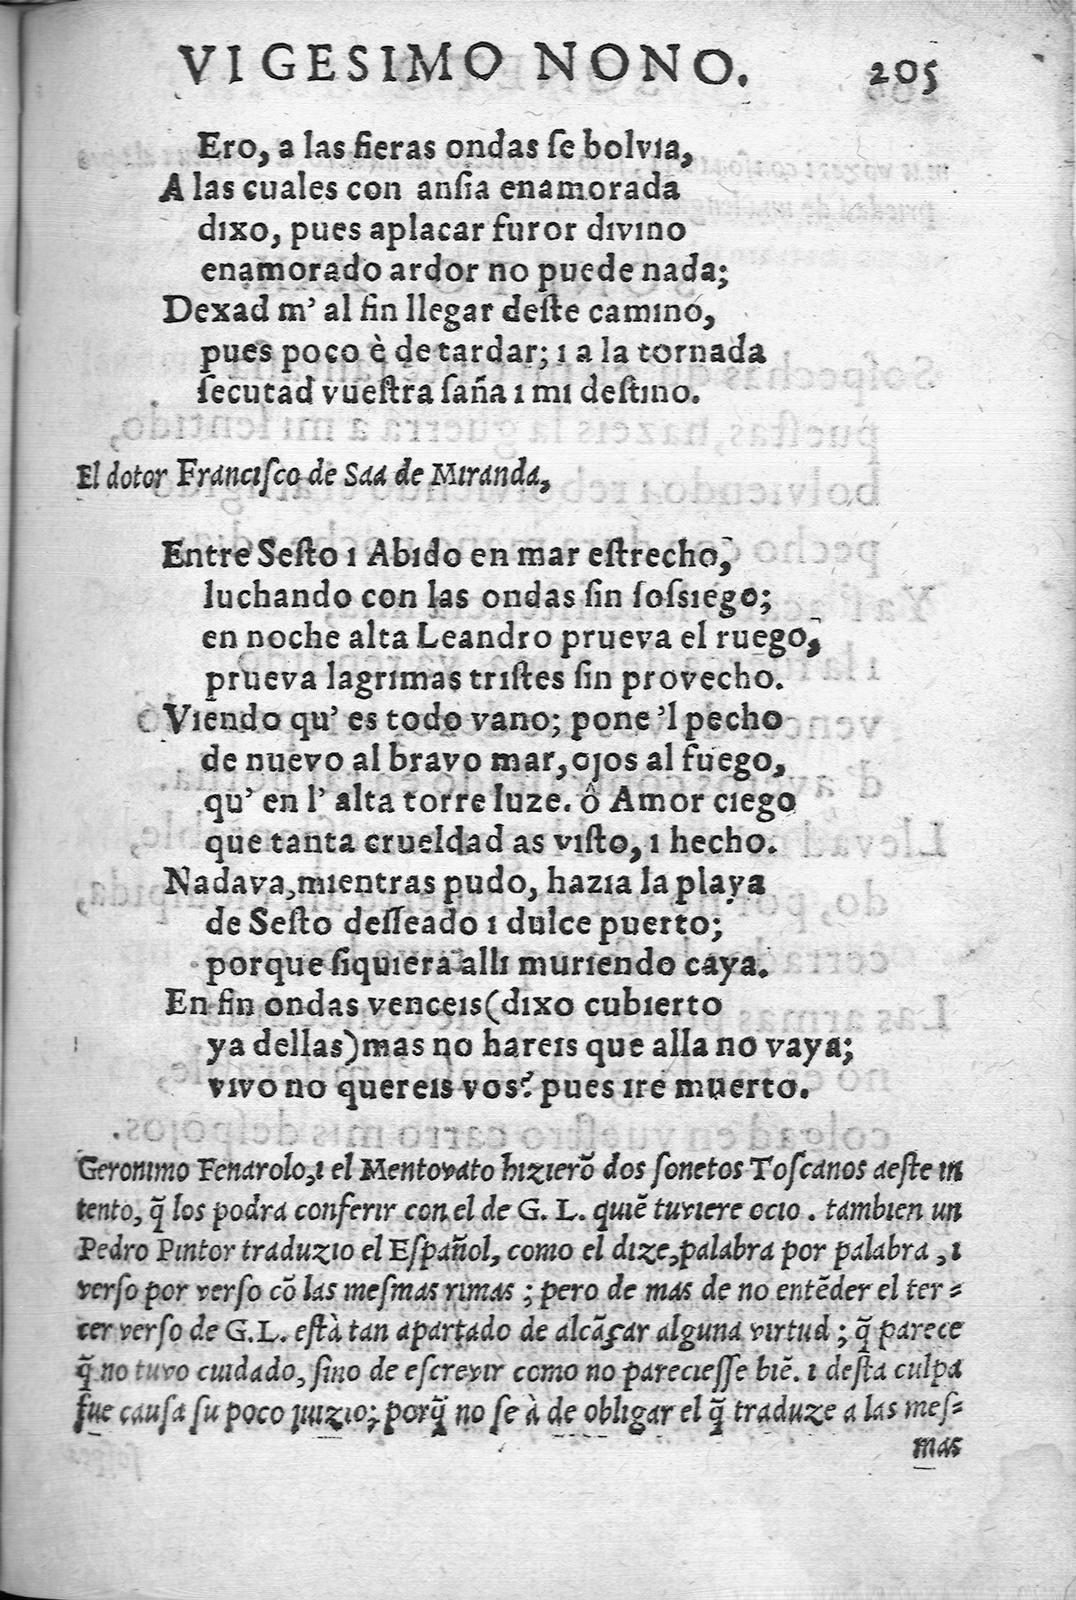 VIGESIMO NONO. 205
Ero, a las fieras ondas ſe bolvıa,
A las cuales con anſıa enamorada
dıxo, pues aplacar furor dıvıno
enamorado ardor no puede nada;
Dexad m’ al fin llegar deſte camınó,
pues poco è de tardar; ı a la tornada
ſecutad vueſtra ſaña ı mı deſtıno.
El dotor Francıſco de Saa de Mıranda,
Entre Seſto ı Abıdo en mar eſtrecho,
luchando con las ondas ſin ſoſsıego;
en noche alta Leandro prueva el ruego,
prueva lagrımas trıſtes ſin provecho.
Vıendo qu’ es todo vano; pone ’l pecho
de nuevo al bravo mar, ojos al fuego,
qu’ en l’ alta torre luze. ô Amor cıego
que tanta crueldad as vıſto, ı hecho.
Nadava, mıentras pudo, hazıa la playa
de Seſto deſſeado ı dulce puerto;
porque ſiquıera allı murıendo caya.
En fin ondas venceıs (dıxo cubıerto
ya dellas) mas no hareıs que alla no vaya;
vıvo no quereıs vos? pues ıre muerto.
Geronımo Fenarolo, ı el Mentovato hızıerõ dos ſonetos Toſcanos deſte ın
tento, q̃ los podra conferır con el de G. L. quıẽ tuvıere ocıo. tambıen un
Pedro Pıntor traduzıo el Eſpañol, como el dıze, palabra por palabra, ı
verſo por verſo cõ las meſmas rımas; pero de mas de no entẽder el ter-
cer verſo de G. L. eſtà tan apartado de alcãçar alguna vırtud; q̃ parece
q̃ no tuvo cuıdado, ſino de eſcrevır como no parecıeſſe bıẽ. ı deſta culpa
fue cauſa ſu poco juızıo; porq̃ no ſe à de oblıgar el q̃ traduze a las meſ-
mas